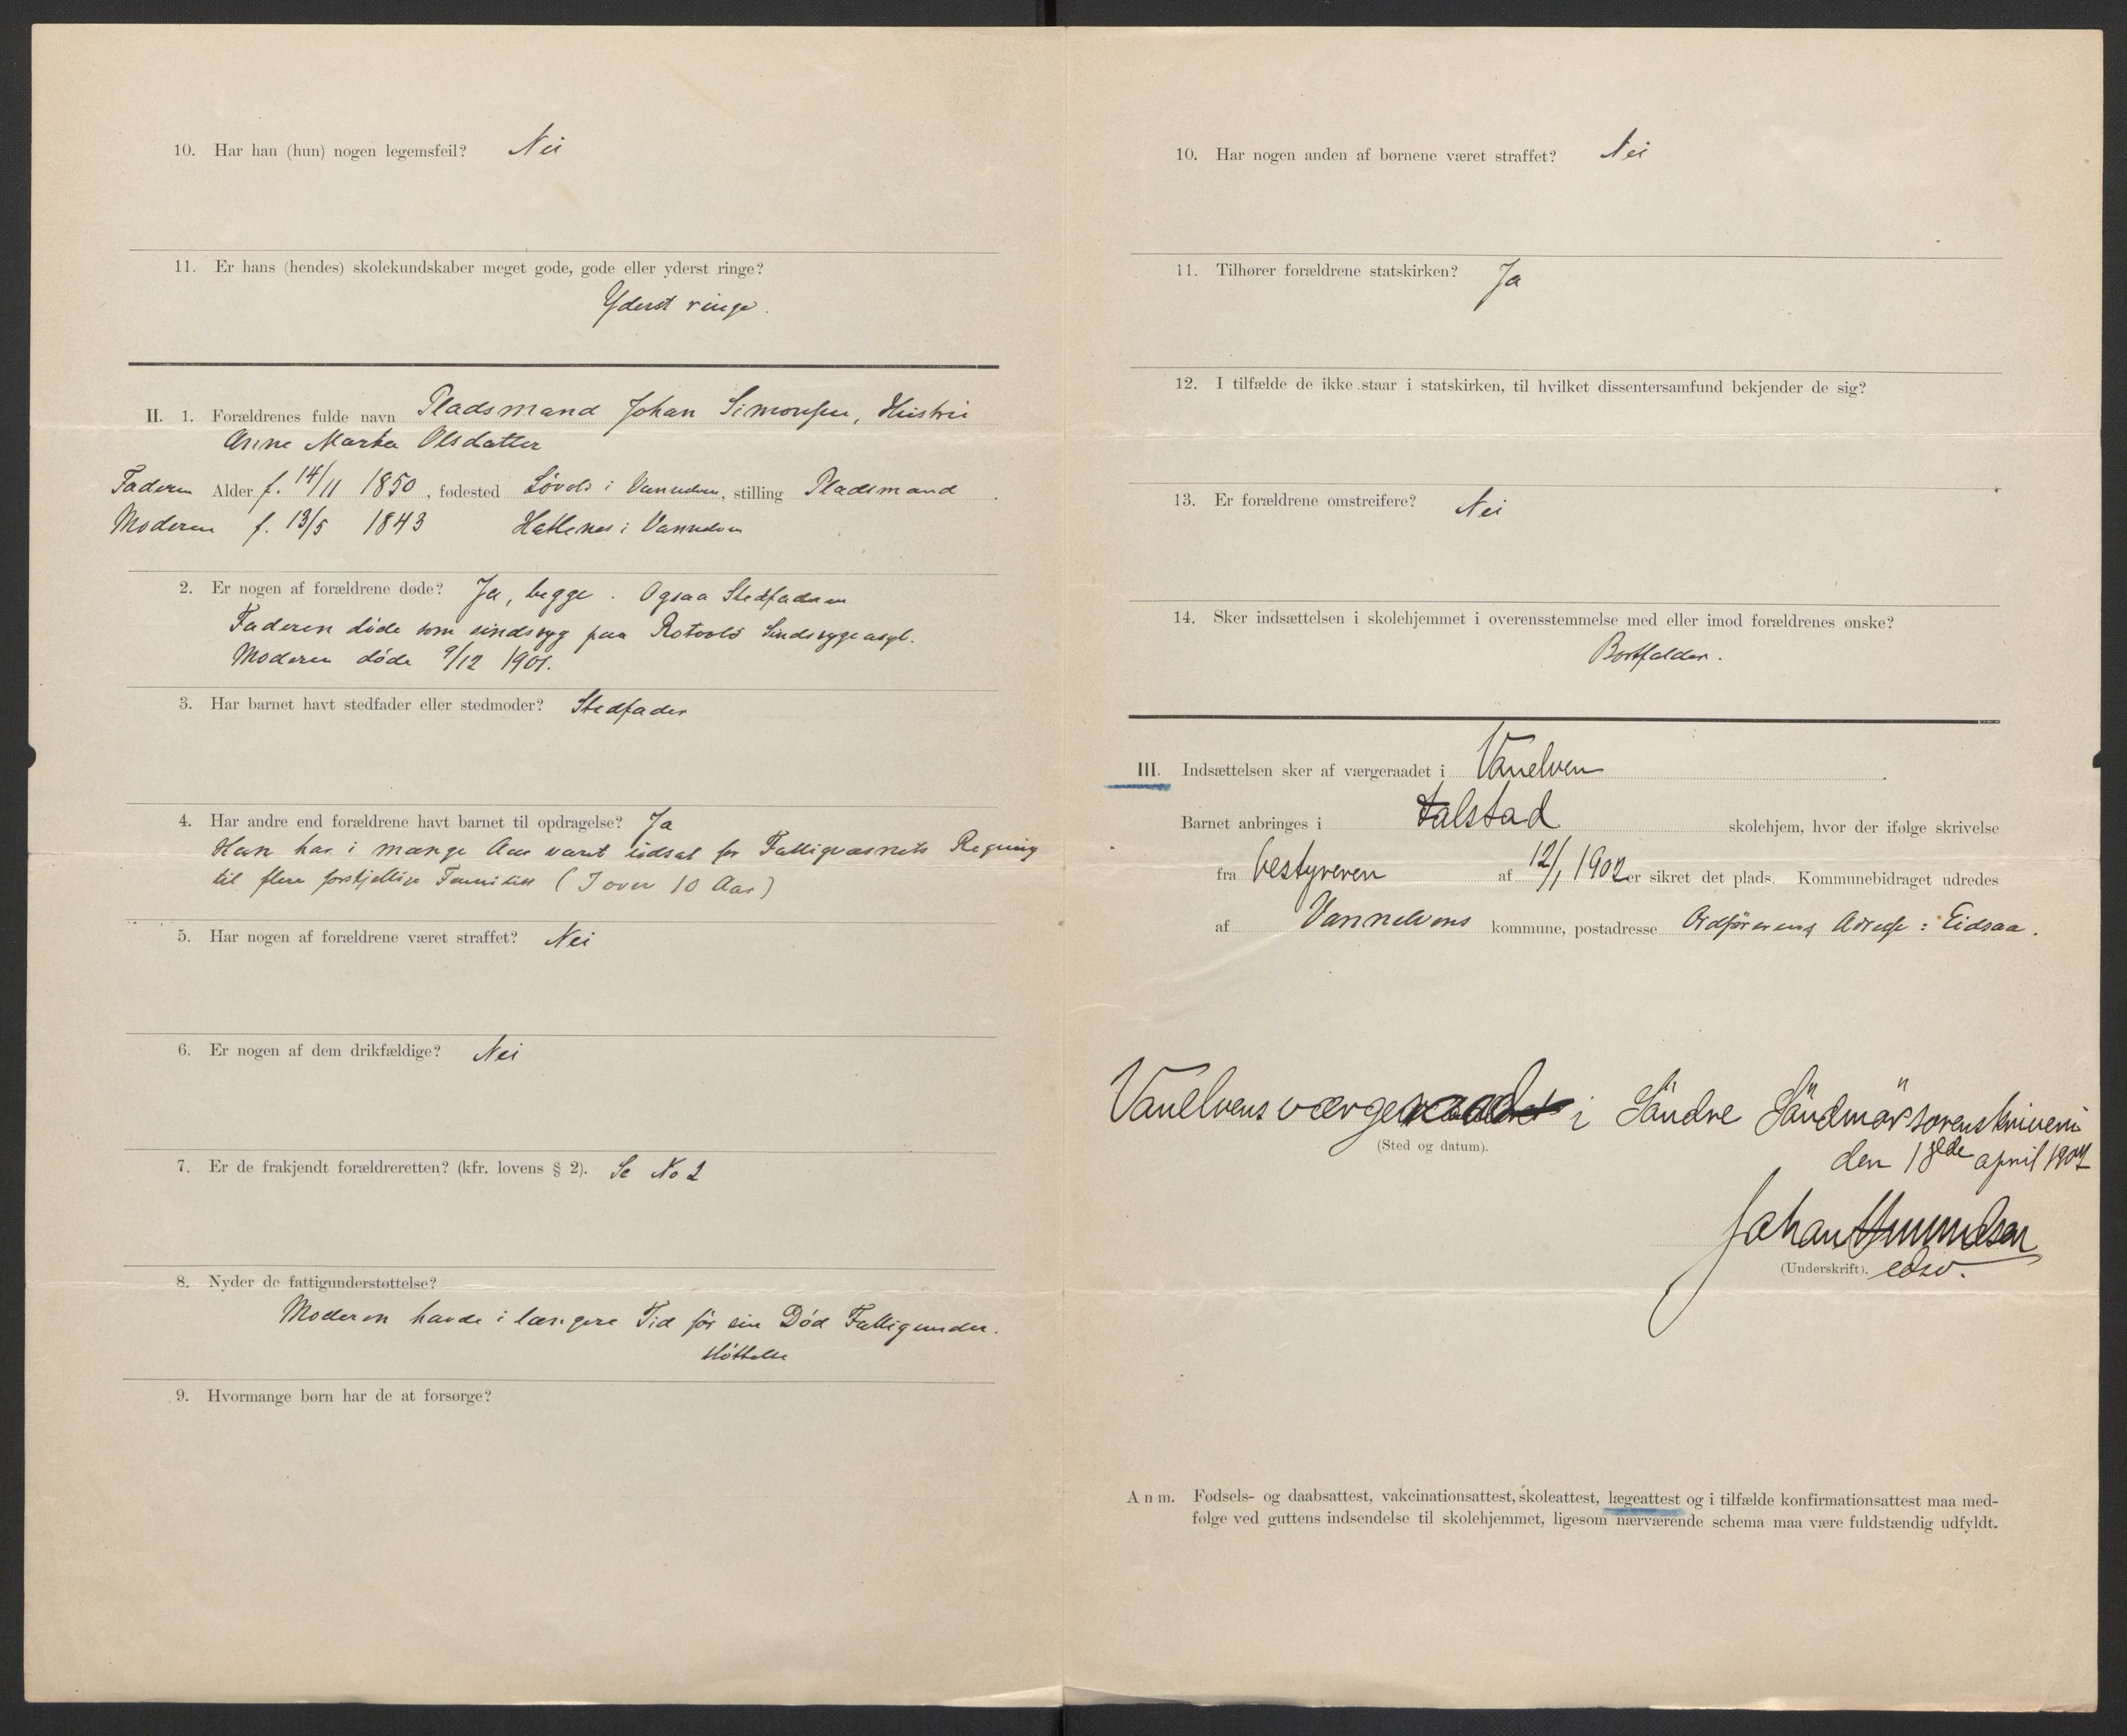 10. Har han (hun) nogen legemsfeil? Nei
11. Er hans (hendes) skolekundskaber meget gode, gode eller yderst ringe?
Yderst ringe.
II. 1. Forældrenes fulde navn Pladsmand Johan Simonsen, Hustru
Anne Marta Olsdatter
Faderen Alder f. 14/11 1850, fødested Løvold i Vannelven, stilling Pladsmand.
Moderen f. 13/5 1843 Hatlenes i Vannelven
2. Er nogen af forældrene døde? Ja, begge. Ogsaa Stedfaderen
Faderen døde som sindssyg paa Rotvolds Sindssygeasyl.
Moderen døde 9/12 1901.
3. Har barnet havt stedfader eller stedmoder? Stedfader
4. Har andre end forældrene havt barnet til opdragelse? Ja
Han har i mange Aar været udsat for Fattigvæsnets Regning
til flere forskjellige Familier (I over 10 Aar)
5. Har nogen af forældrene været straffet? Nei
6. Er nogen af dem drikfældige? Nei
7. Er de frakjendt forældreretten? (kfr. lovens § 2). Se No 2
8. Nyder de fattigunderstøttelse?
Moderen havde i længere Tid før sin Død Fattigunder-
støttelse
9. Hvormange børn har de at forsørge?
10. Har nogen anden af børnene været straffet? Nei
11. Tilhører forældrene statskirken? Ja
12. I tilfælde de ikke staar i statskirken, til hvilket dissentersamfund bekjender de sig?
13. Er forældrene omstreifere? Nei
14. Sker indsættelsen i skolehjemmet i overensstemmelse med eller imod forældrenes ønske?
Bortfalder.
III. Indsættelsen sker af værgeraadet i Vanelven.
Barnet anbringes i Falstad skolehjem, hvor der ifølge skrivelse
fra bestyreren af 12/1 1902 er sikret det plads. Kommunebidraget udredes
af Vannelvens kommune, postadresse Ordførerens Adresse: Eidsaa.
Vanelvens værgeraadet i Søndre Søndmør sorenskriveri
(Sted og datum).
den 18de april 1902
Johan Amundsen
(Underskrift). edsv.
Anm. Fødsels- og daabsattest, vakcinationsattest, skoleattest, lægeattest og i tilfælde konfirmationsattest maa med-
følge ved guttens indsendelse til skolehjemmet, ligesom nærværende schema maa være fuldstændig udfyldt.